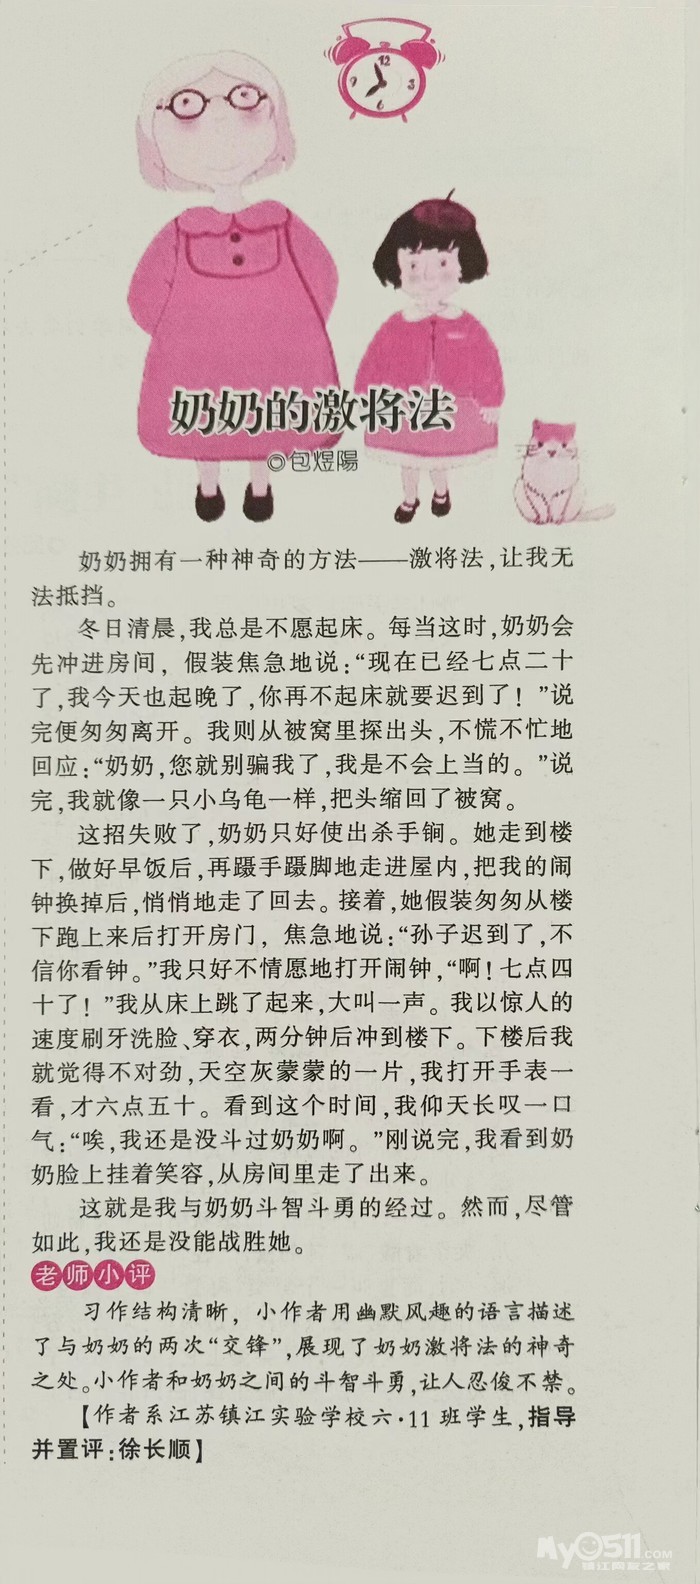 12
3
6
9
奶奶的激将法
◎包煜陽
奶奶拥有一种神奇的方法——激将法,让我无
法抵挡。
冬日清晨,我总是不愿起床。每当这时,奶奶会
先冲进房间，假装焦急地说:“现在已经七点二十
了,我今天也起晚了,你再不起床就要迟到了！”说
完便匆匆离开。我则从被窝里探出头,不慌不忙地
回应:“奶奶,您就别骗我了,我是不会上当的。”说
完,我就像一只小乌龟一样,把头缩回了被窝。
这招失败了,奶奶只好使出杀手锏。她走到楼
下,做好早饭后,再蹑手蹑脚地走进屋内,把我的闹
钟换掉后,悄悄地走了回去。接着,她假装匆匆从楼
下跑上来后打开房门，焦急地说:“孙子迟到了,不
信你看钟。”我只好不情愿地打开闹钟,“啊！七点四
十了！”我从床上跳了起来,大叫一声。我以惊人的
速度刷牙洗脸、穿衣,两分钟后冲到楼下。下楼后我
就觉得不对劲,天空灰蒙蒙的一片,我打开手表一
看,才六点五十。看到这个时间,我仰天长叹一口
气:“唉,我还是没斗过奶奶啊。”刚说完,我看到奶
奶脸上挂着笑容,从房间里走了出来。
这就是我与奶奶斗智斗勇的经过。然而,尽管
如此,我还是没能战胜她。
老师小评
习作结构清晰，小作者用幽默风趣的语言描述
了与奶奶的两次“交锋”,展现了奶奶激将法的神奇
之处。小作者和奶奶之间的斗智斗勇,让人忍俊不禁。
【作者系江苏镇江实验学校六·11班学生,指导
并置评:徐长顺】
My0511.COM
镇江网友之家